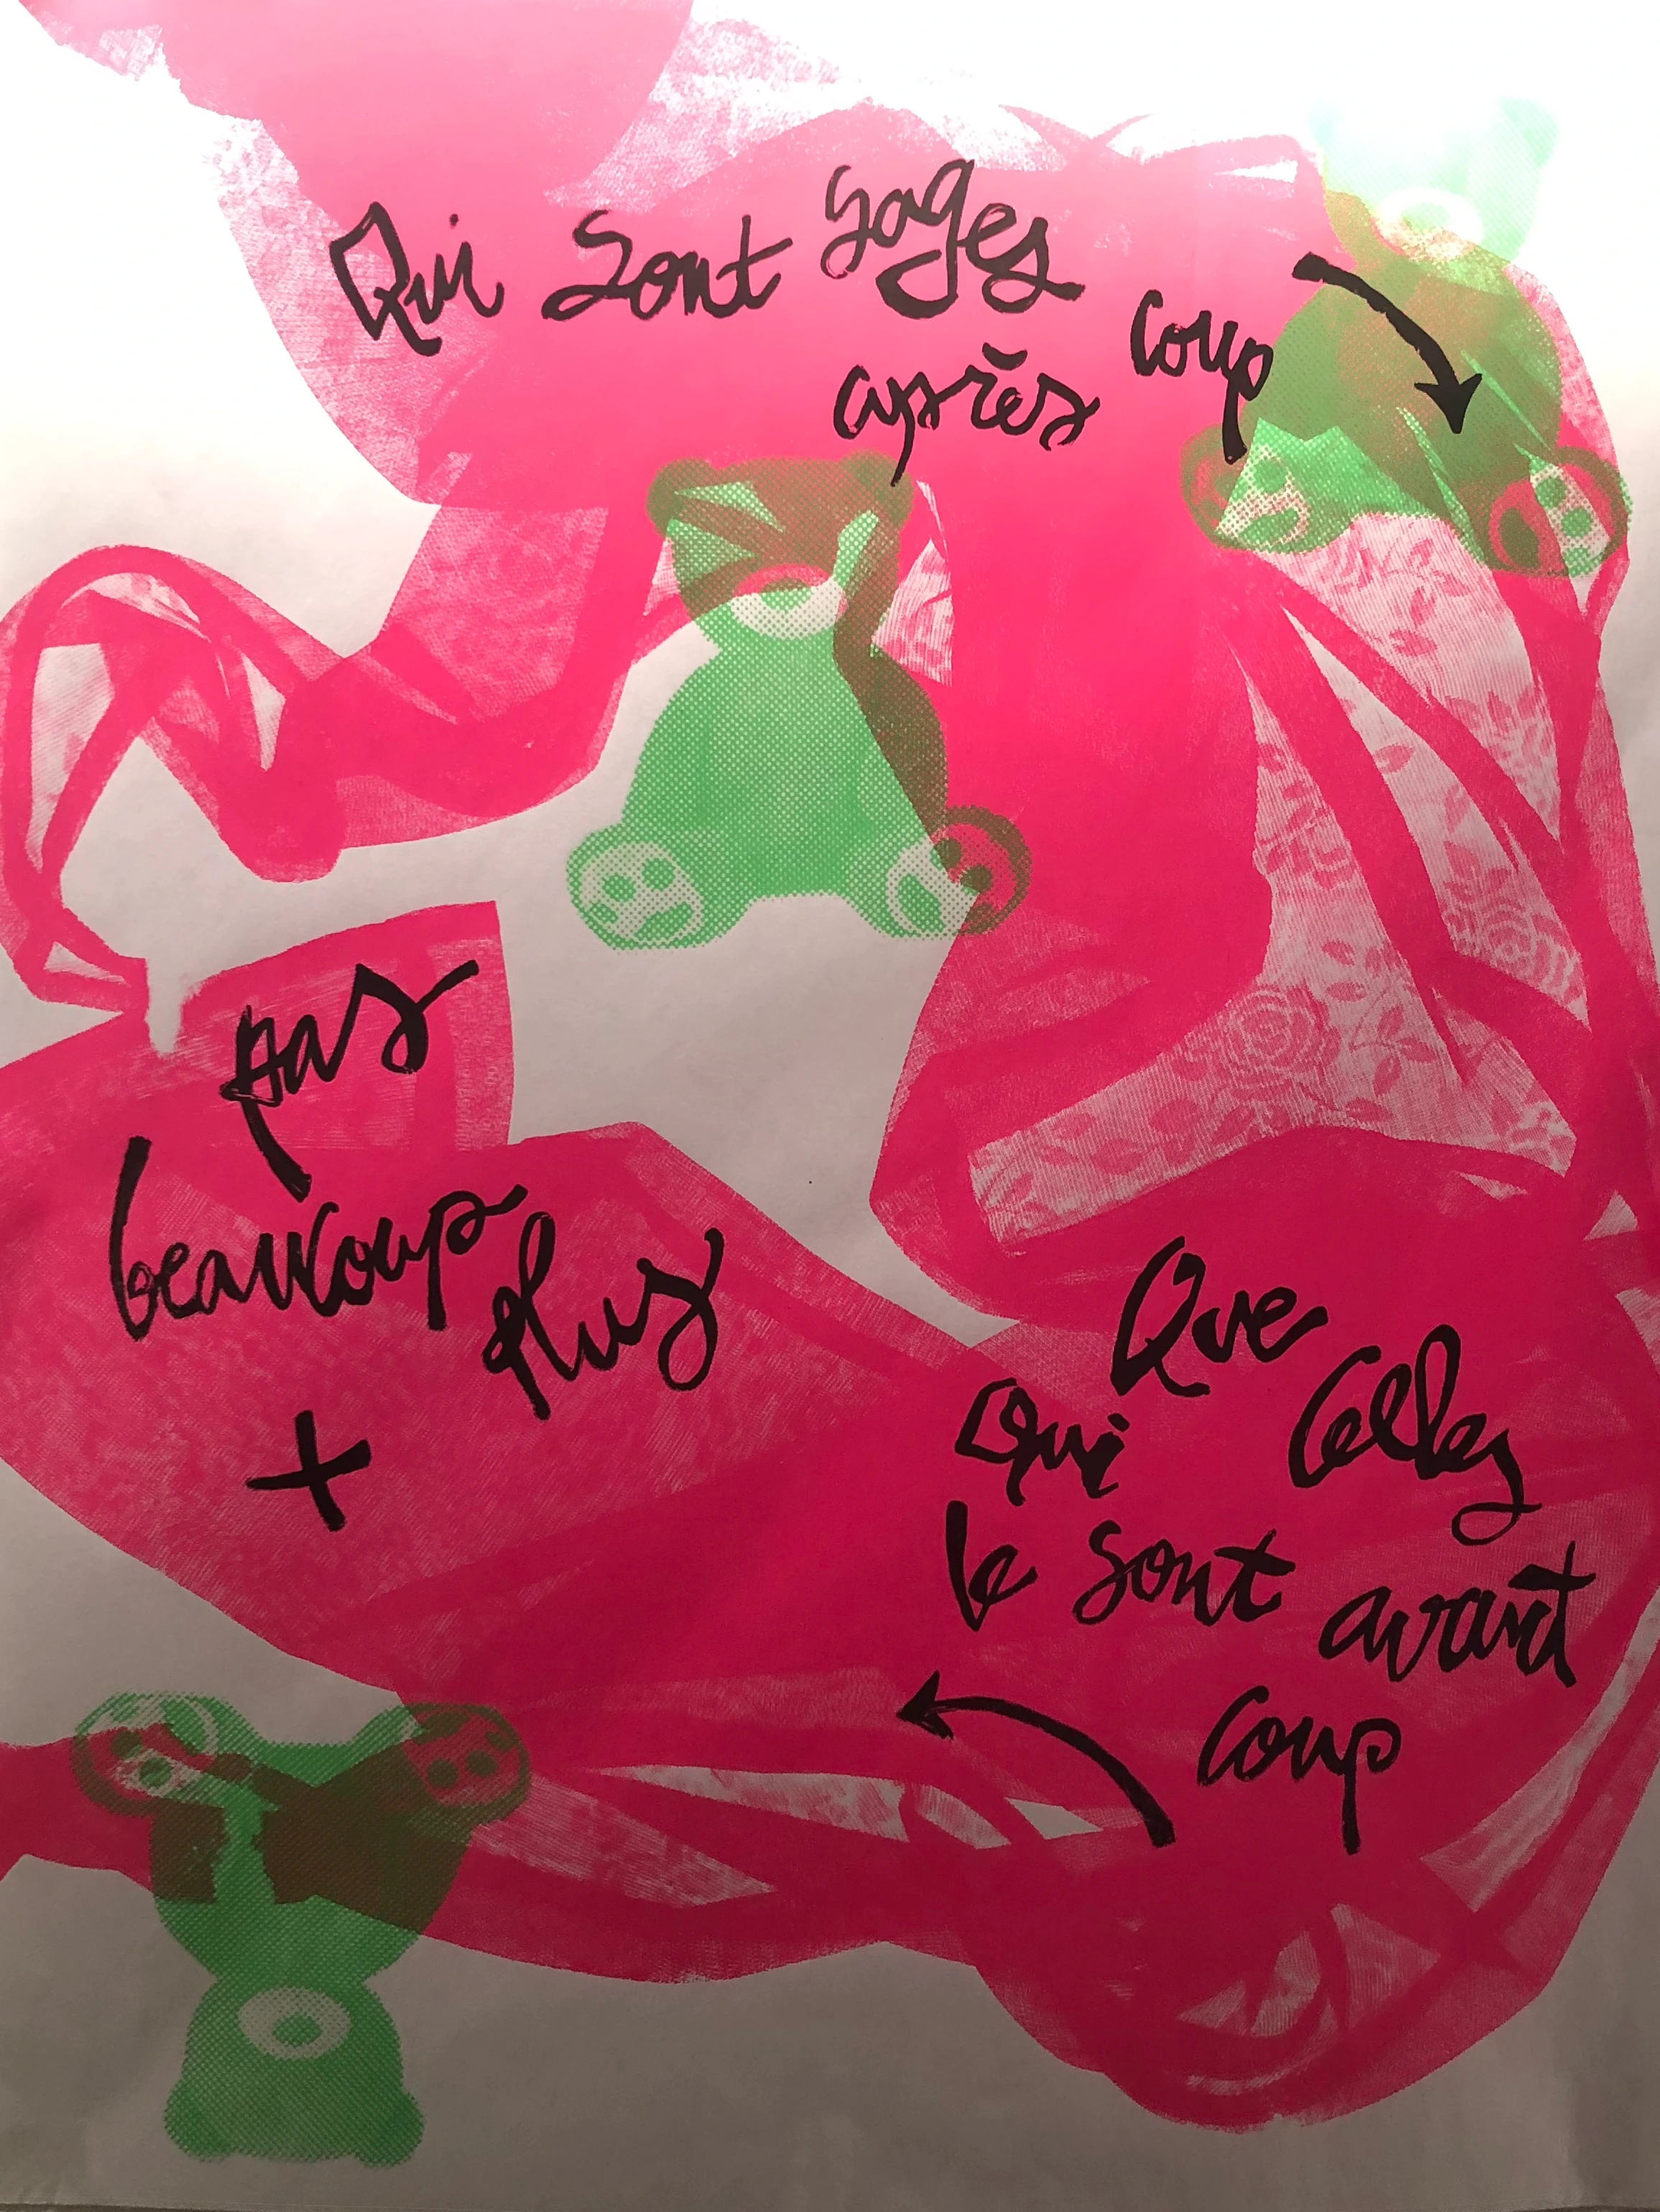 Qui sont sages
après coup
pas
beaucoup
plus
+
Que
Celles
Qui
le sont avant
coup